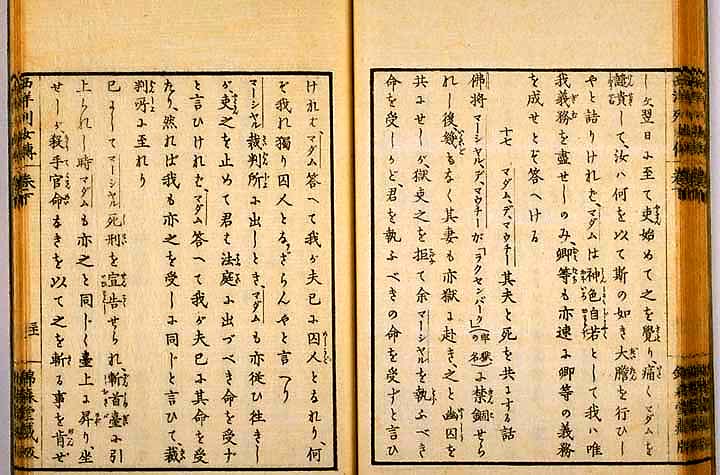 し ゞ翌日に至て吏始めて之を覺り痛くマダムを
譴責して、汝ハ何を以て斯の如き大膽を行ひし
やと詰りけれバ、マダムは神色自若として我ハ唯
我義務を盡せしのみ、卿等も亦速に卿等の義務
を成せとぞ答へける
十七 マダム、デ、マウチー其夫と死を共にする話
佛將マーシャル、デ、マウチーが「ラクセンバーグ」(牢獄の名)に禁錮せら
れし後、幾もなく其妻も亦獄に赴き之と幽囚を
共にせしが、獄吏之を拒て余マーシャルを執ふべき
命を受しかど、君を執ふべきの命を受ずと言ひ
けれバマダム答へて我が夫已に囚人となれり、何
ぞ我れ獨り囚人とならざらんやと言へり
マーシャル裁判所に出しとき、マダムも亦從ひ往きし
が、吏之を止めて君は法庭に出づべき命を受ず
と言ひけれバ、マダム答へて我が夫已に其命を受
たり、然れば我も亦之を受しに同じと言ひて、裁
判所に至れり
已にしてマーシャル死刑を宣告せられ斬首臺に引
上られし時マダムも亦之と同じく臺上に昇り坐
せしが殺手官命なきを以て之を斬る事を肯ぜ
西洋列女傳 卷下
錦森堂藏版